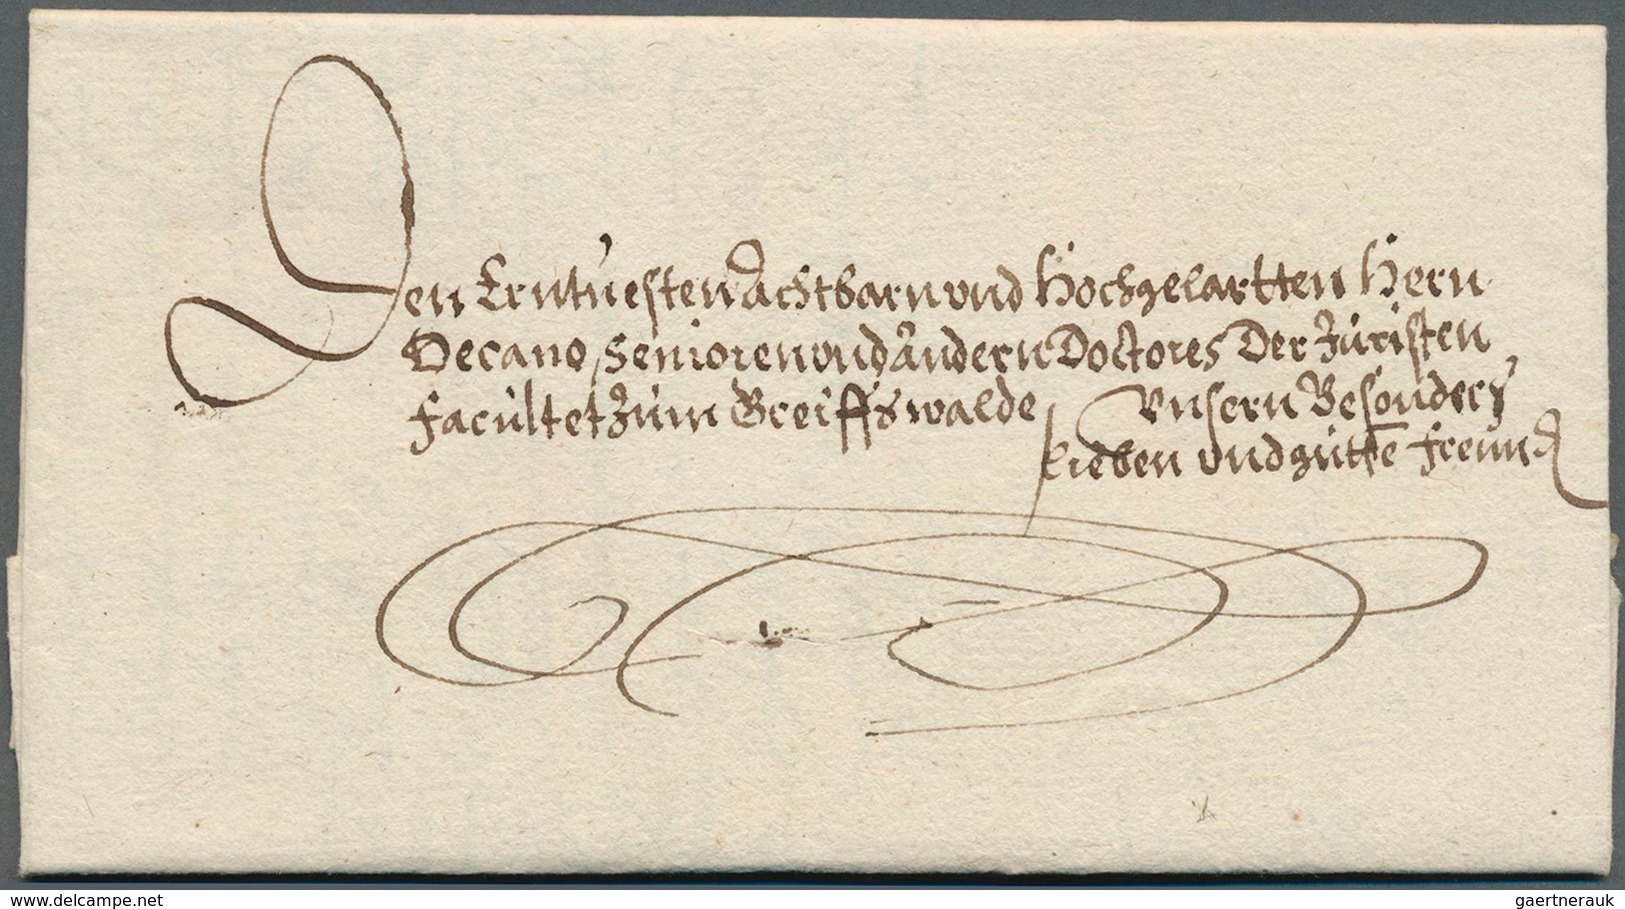 Den Erntuesten Achtbarn vnd Hochgelartten Hern
Decano, Senioren vnd Andern Doctores Der Juristen
Facultet Zum Greiffswalde Vnsern Besondern
Lieben vnd gutte Freund
www.delcampe.net
gaertnerauk